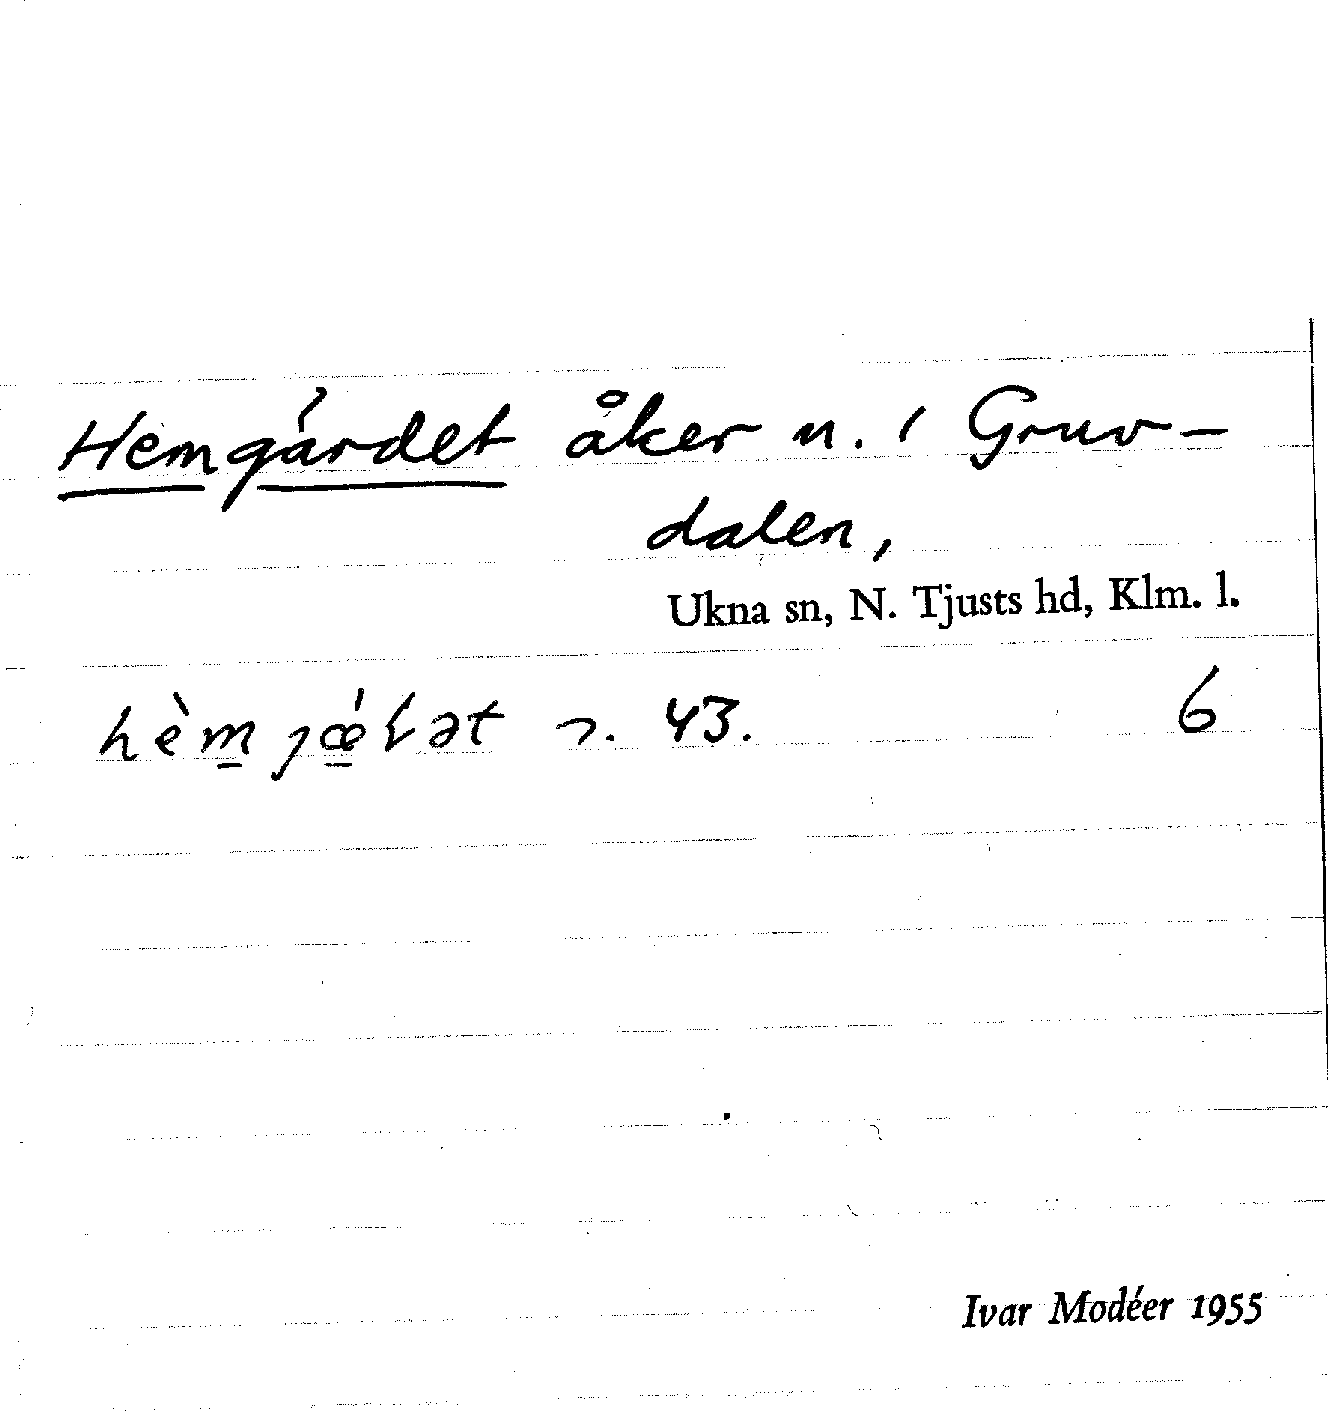 Hemgärdet åker n. i Gruv-
dalen,
Ukna sn, N. Tjusts hd, Klm. l.
43. 6
Ivar Modéer 1955